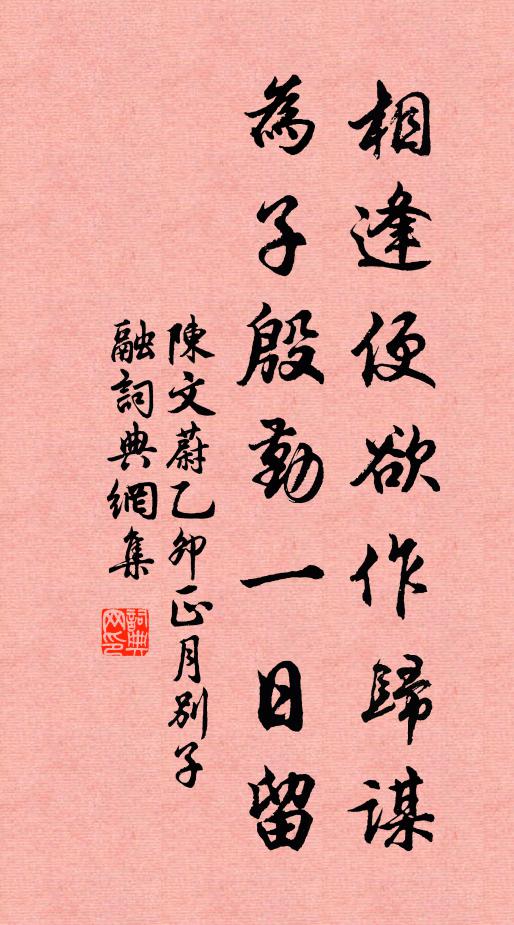 相逢便欲作歸謀
為子殷勤一日留
陳文蔚乙卯正月別子
融詞典網集
詞典
网印